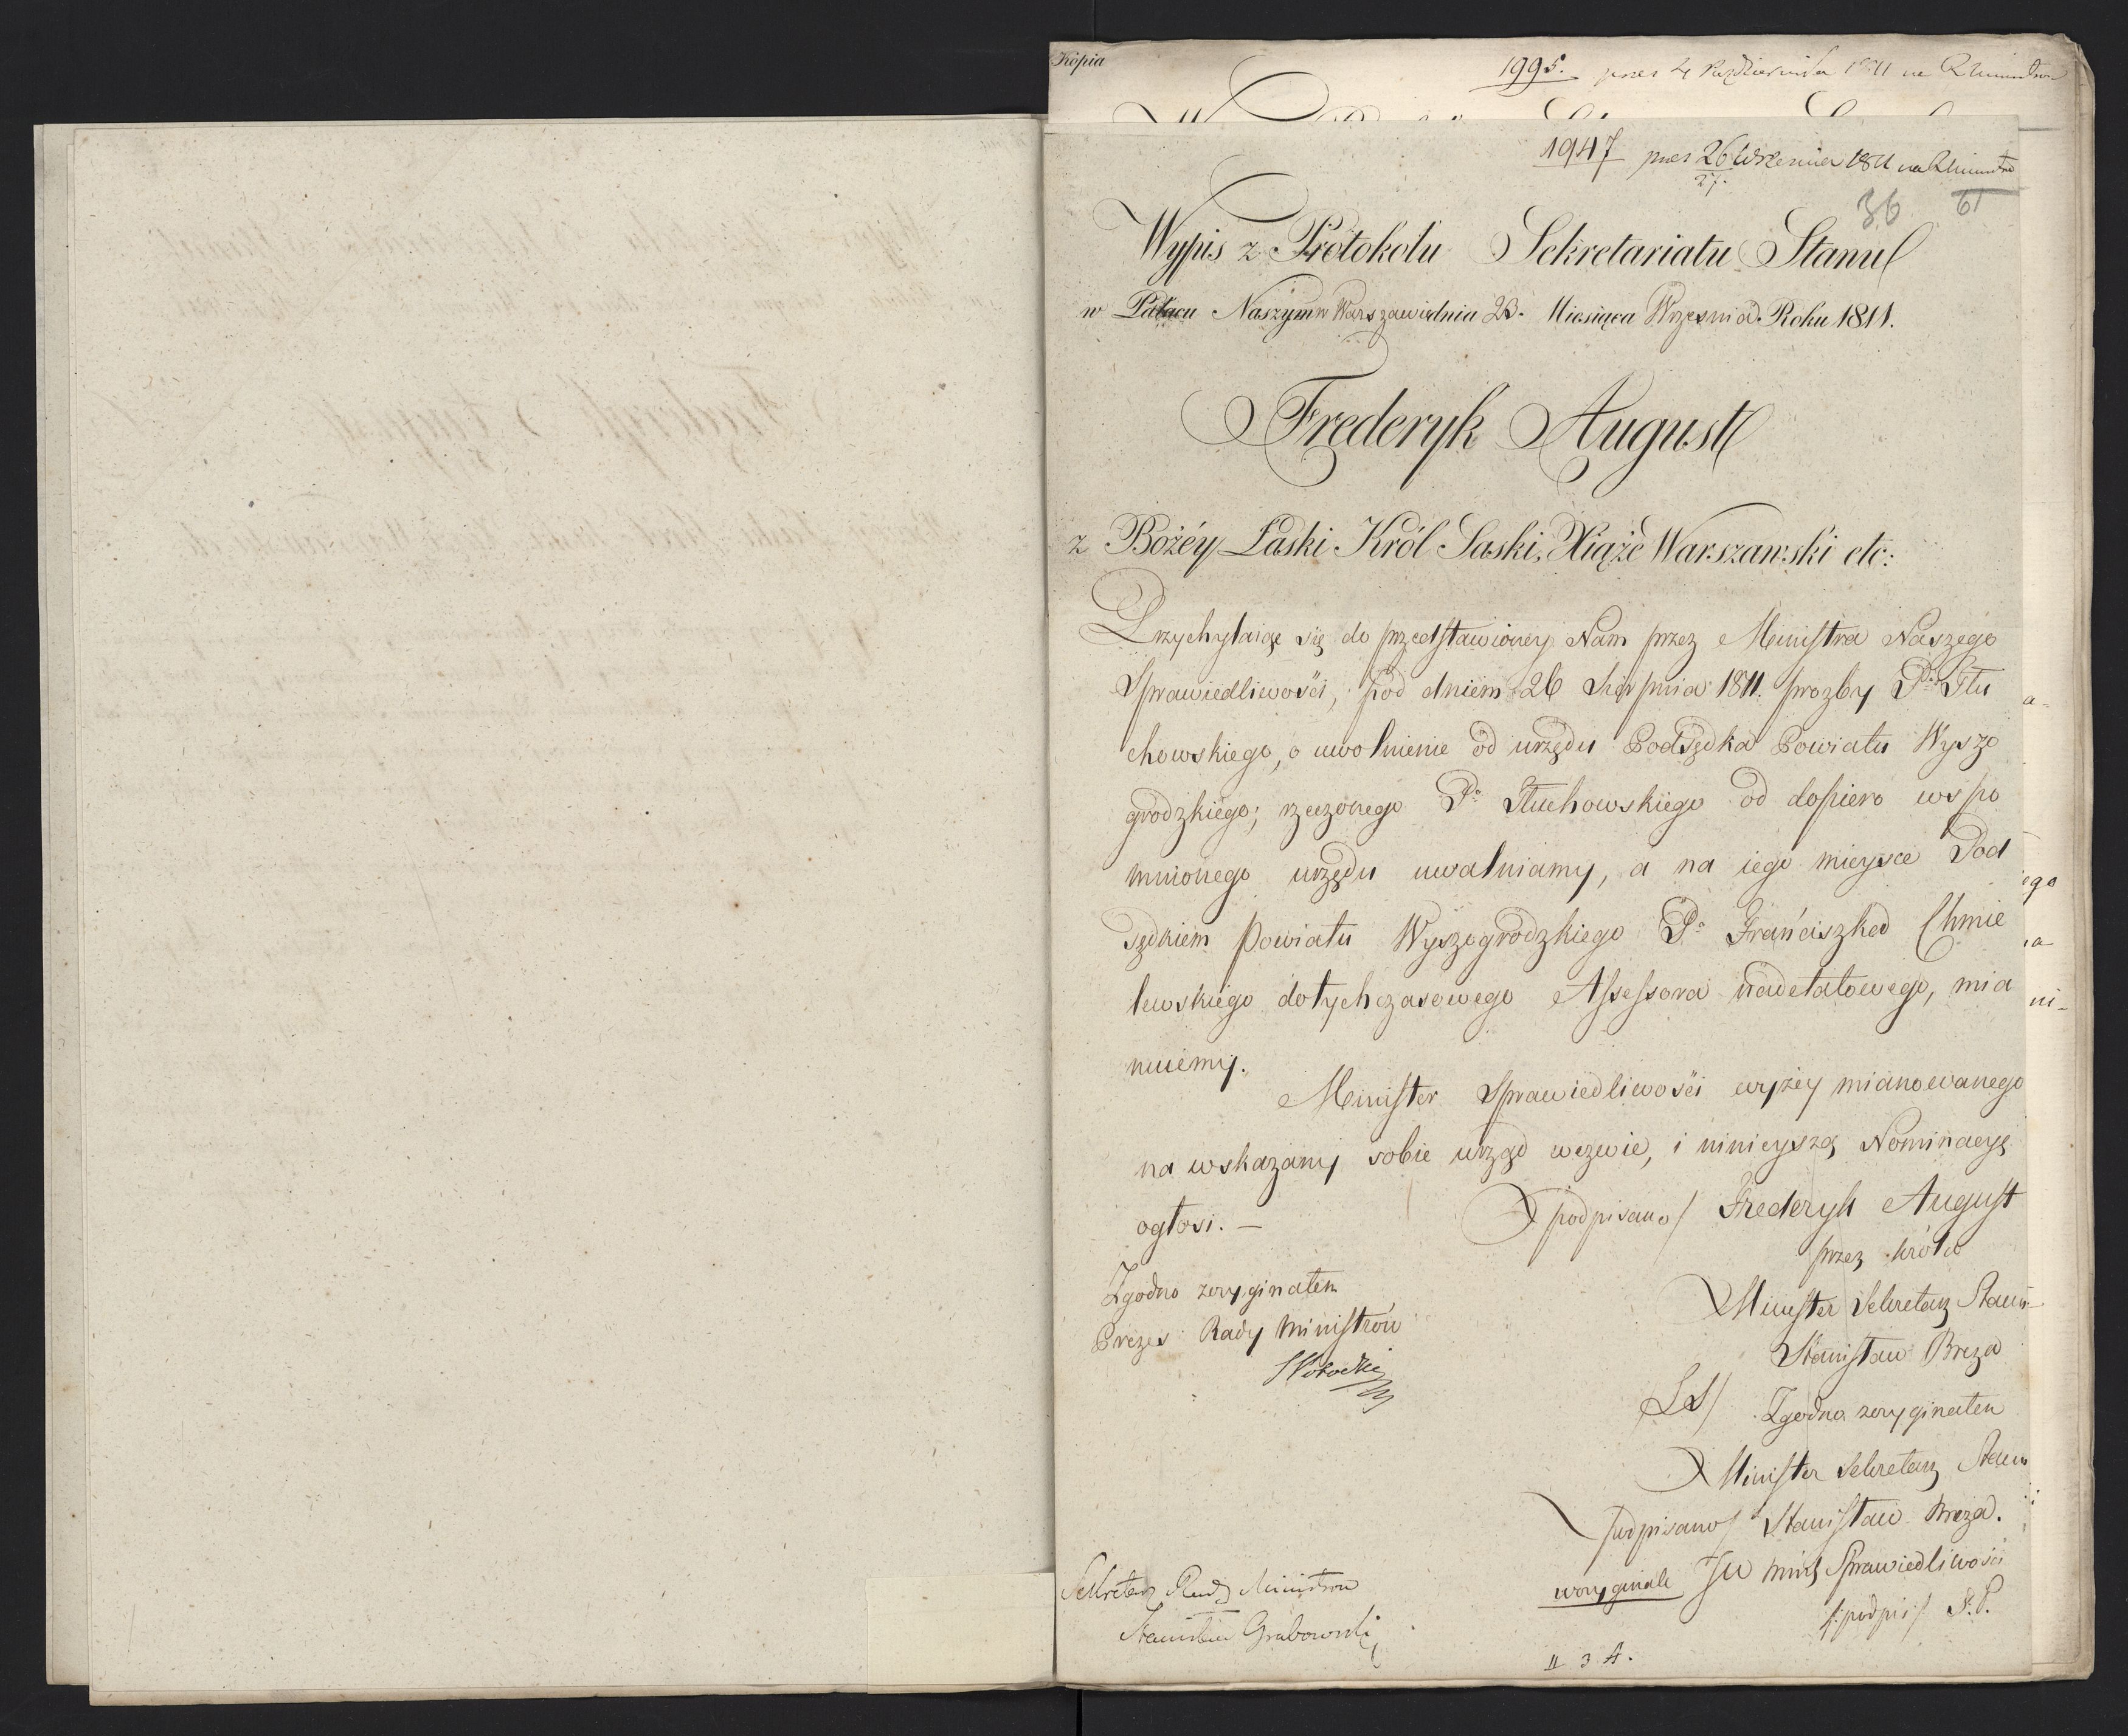 Kopia
1995. prez 4 Października 1811 na R Ministrow
1947 prez 26 Września 1811 na R Ministrow
27.
36 61
Wypis z Protokołu Sekretariatu Stanu
w Pałacu Naszym w Warszawie dnia 23. Miesiąca Września Roku 1811.
Frederyk August
z Bożéy Łaski Król Saski, Xiąże Warszawski etc:
Przychylaiąc się do przedstawioney Nam przez Ministra Naszego
Sprawiedliwości, pod dniem 26 Sierpnia 1811. prozby P. Tłu
chowskiego, o uwolnienie od urzędu Podsędka Powiatu Wyszo
grodzkiego; rzeczonego P. Tłuchowskiego od dopiero wspo
mnionego urzędu uwalniamy, a na iego mieysce Pod
sędkiem Powiatu Wyszogrodzkiego P. Franciszka Chmie
lewskiego dotychczasowego Assessora nadetatowego, mia
nuiemy.
Minister Sprawiedliwości wyżey mianowanego
na wskazany sobie urząd wezwie, i ninieyszą Nominacyę
ogłosi. —
podpisano/ Frederyk August
przez króla
Minister Sekretarz Stanu
Stanisław Breza
LS/ Zgodno z oryginałem
Minister Sekretarz Stanu
podpisano/ Stanisław Breza.
w oryginale Min Sprawiedliwości
/:podpis:/ F. Ł.
Zgodno z oryginałem
Prezes Rady Ministrów
S Potocki
Sekretarz Rady Ministrow
Stanisław Grabowski
II 3 A.